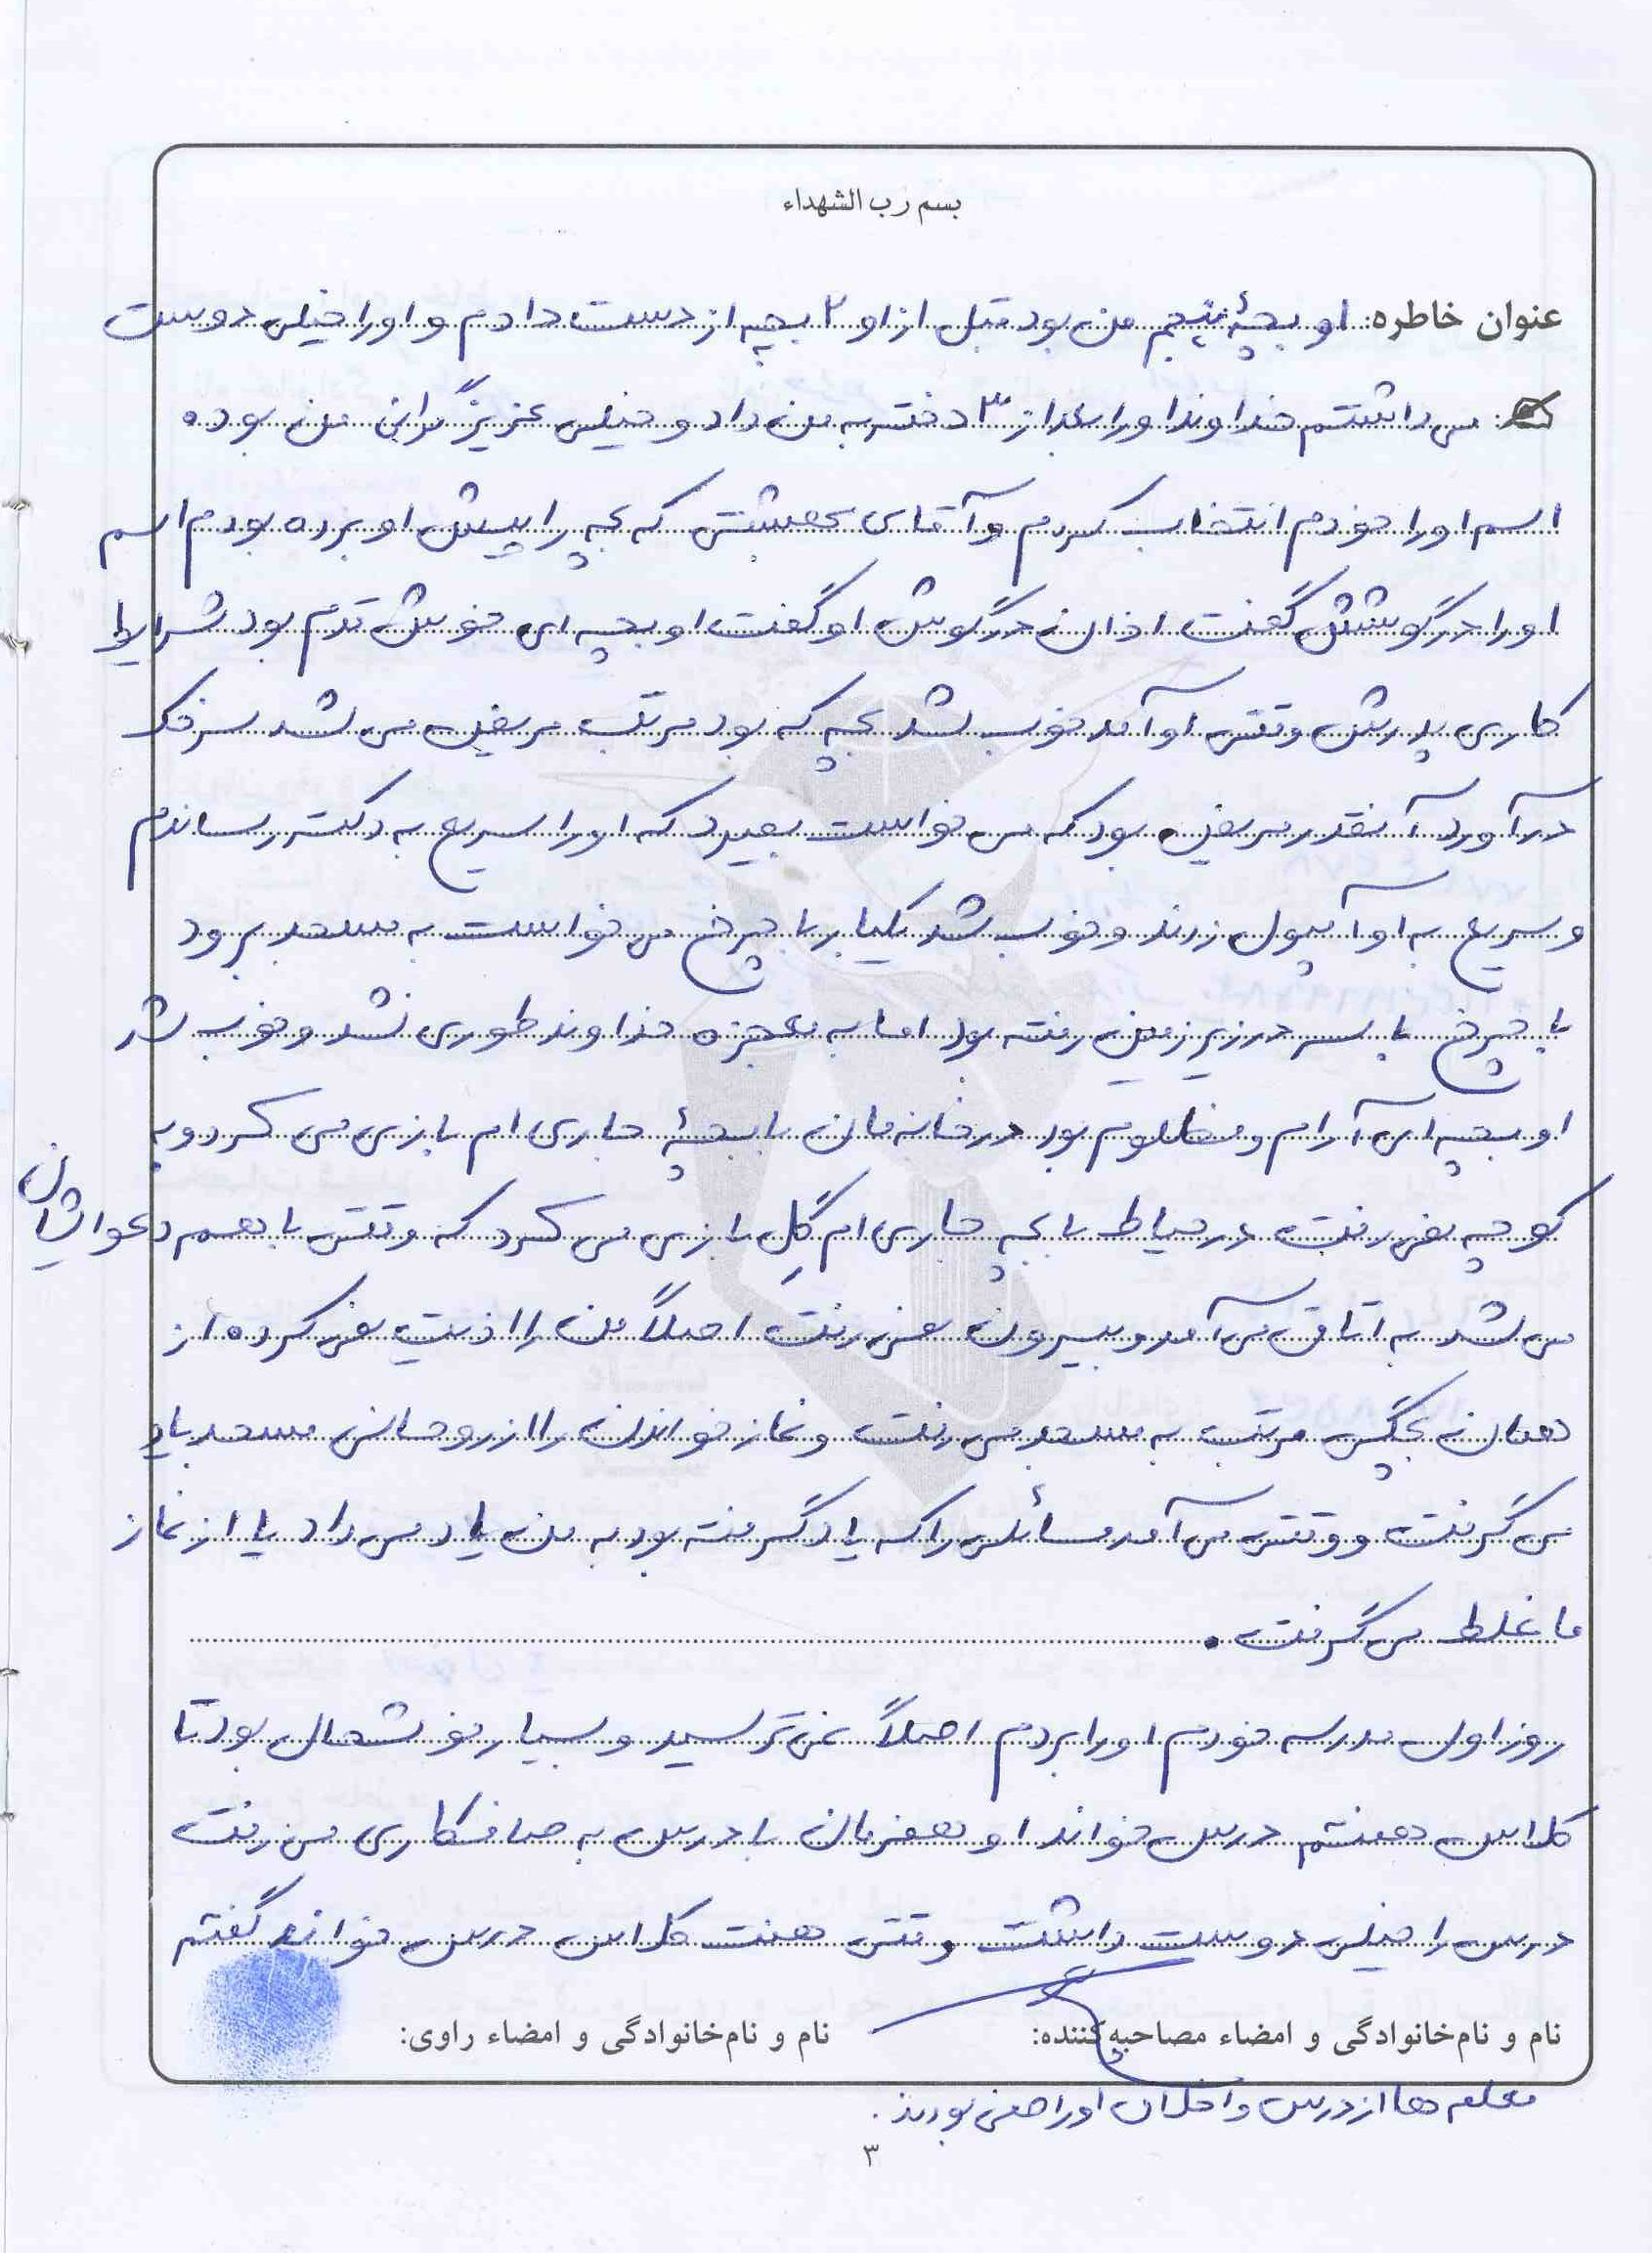 بسم رب الشهداء
عنوان خاطره: او بچهٔ پنجم من بود قبل از او ۲ بچه از دست دادم و او را خیلی دوست
می داشتم خداوند او را بعد از ۳ دختر به من داد و خیلی عزیز برای من بوده
اسم او را خودم انتخاب کردم و آقای بهشتی که بچه را پیش او برده بودم اسم
او را در گوشش گفت اذان در گوش او گفت او بچه ای خوش قدم بود شرایط
کاری پدرش وقتی او آمد خوب شد بچه که بود مرتب مریض می شد سرخک
درآورد آنقدر مریض بود که می خواست بمیرد که او را سریع به دکتر رساندم
و سریع به او آمپول زدند و خوب شد یکبار با چرخ می خواست به مسجد برود
با چرخ با سر در زیرزمین رفته بود اما به معجزه خداوند طوری نشد و خوب شد
او بچه ای آرام و مظلوم بود در خانه مان با بچهٔ جاری ام بازی می کرد و به
کوچه نمی رفت در حیاط با بچه جاری ام گِل بازی می کرد که وقتی با هم دعواشان
می شد به اتاق می آمد و بیرون نمی رفت اصلاً من را اذیت نمی کرده از
همان بچگی مرتب به مسجد می رفت و نماز خواندن را از روحانی مسجد یاد
می گرفت و وقتی می آمد مسائلی را که یاد گرفته بود به من یاد می داد یا از نماز
ما غلط می گرفت.
روز اول مدرسه خودم او را بردم اصلاً نمی ترسید و بسیار خوشحال بود تا
کلاس هفتم درس خواند او همزمان با درس به صافکاری می رفت
درس را خیلی دوست داشت وقتی هفت کلاس درس خواند گفتم
نام و نام‌خانوادگی و امضاء مصاحبه‌کننده:
نام و نام‌خانوادگی و امضاء راوی:
معلم ها از درس و اخلاق او راضی بودند.
۳